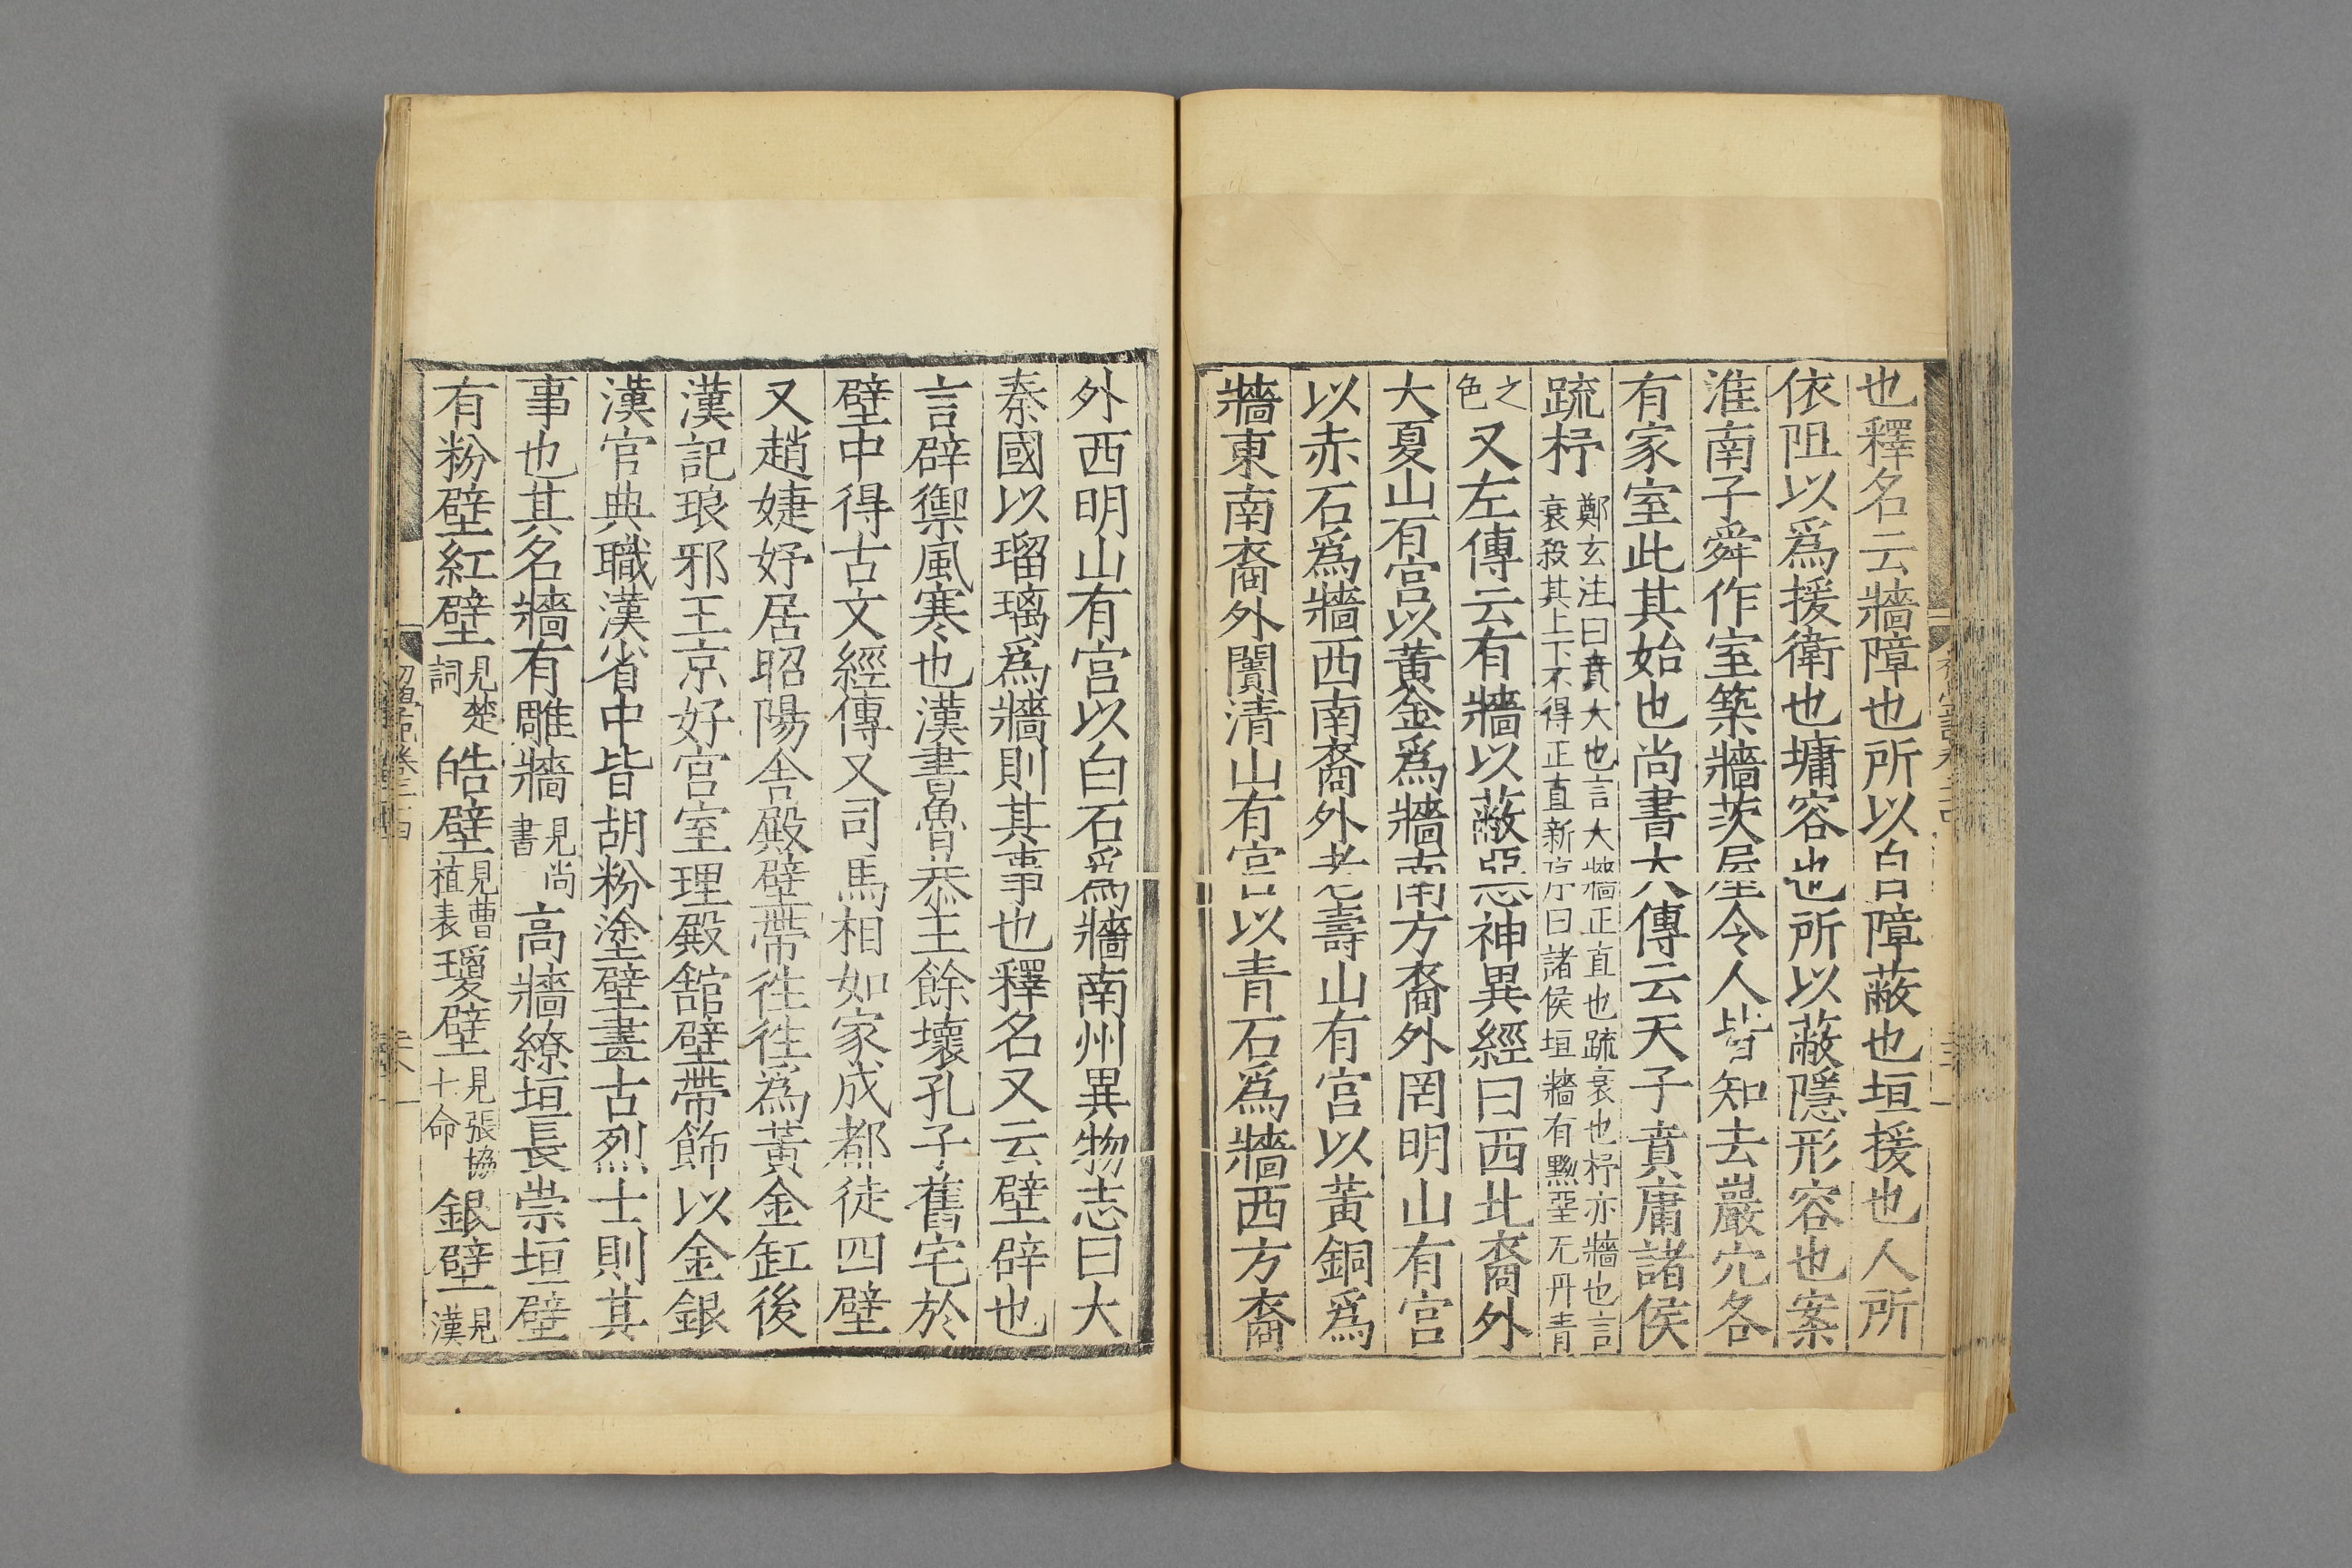 也釋名云牆障也所以自障蔽也垣援也人所
依阻以爲援衛也墉容也所以蔽隱形容也案
淮南子舜作室築牆茨屋令人皆知去巖穴各
有家室此其始也尚書大傳云天子賁庸諸侯
疏杼鄭玄注曰賁大也言大牆正直也疏衰也杼亦牆也言衰殺其上下不得正直新序曰諸侯垣牆有黝堊无丹青
之色又左傳云有牆以蔽惡神異經曰西北裔外
大夏山有宫以黃金爲牆南方裔外罔明山有宫
以赤石爲牆西南裔外老壽山有宫以黃銅爲
牆東南裔外闤清山有宫以青石爲牆西方裔
外西明山有宫以白石爲牆南州異物志曰大
秦國以瑠璃爲牆則其事也釋名又云壁辟也
言辟禦風寒也漢書魯恭王餘壞孔子舊宅於
壁中得古文經傳又司馬相如家成都徒四壁
又趙婕妤居昭陽舍殿壁帶徃徃爲黃金缸後
漢記琅邪王京好宫室理殿館壁帶飾以金銀
漢官典職漢省中皆胡粉塗壁畫古烈士則其
事也其名牆有雕牆見尚書高牆繚垣長崇垣壁
有粉壁紅壁見楚詞皓壁見曹植表瓊壁見張協十命銀壁見漢
初學記卷二十四